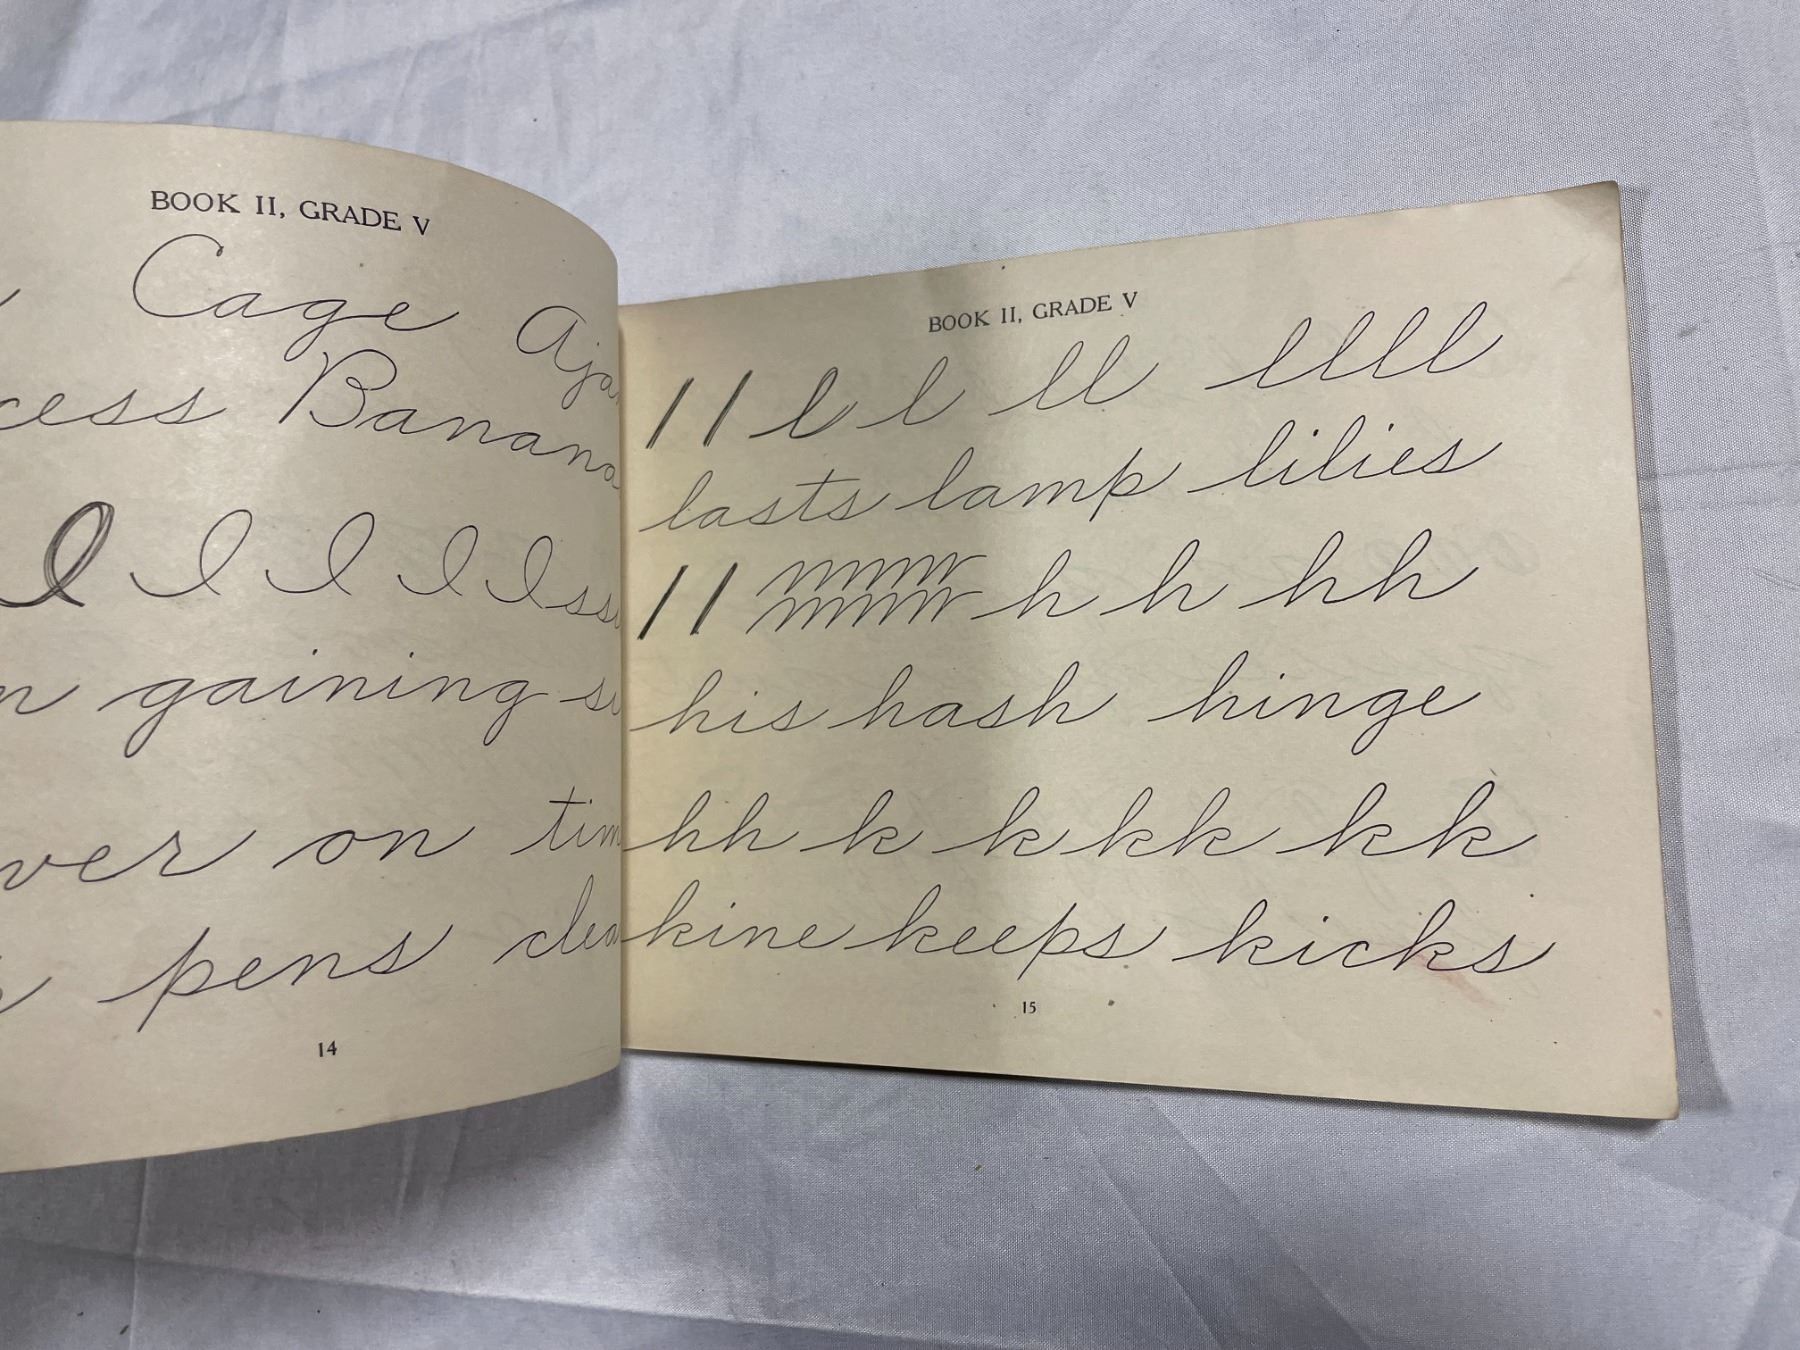 BOOK II, GRADE V
Cage
cess Banana
l l l l l
gaining
ver on tim
pens clea
14
BOOK II, GRADE V
l l l l ll llll
lasts lamp lilies
l l h h hh
his hash hinge
hh k k kk kk
kine keeps kicks
15